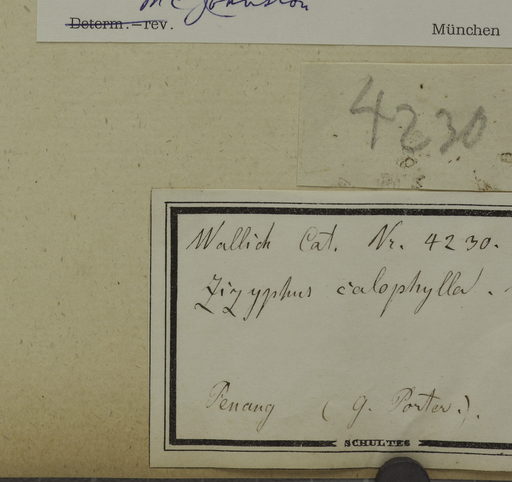 M C Johnston
Determ.–rev. München
4230
Wallich Cat. Nr. 4230.
Zizyphus calophylla.
Penang (G. Porter.).
SCHULTES